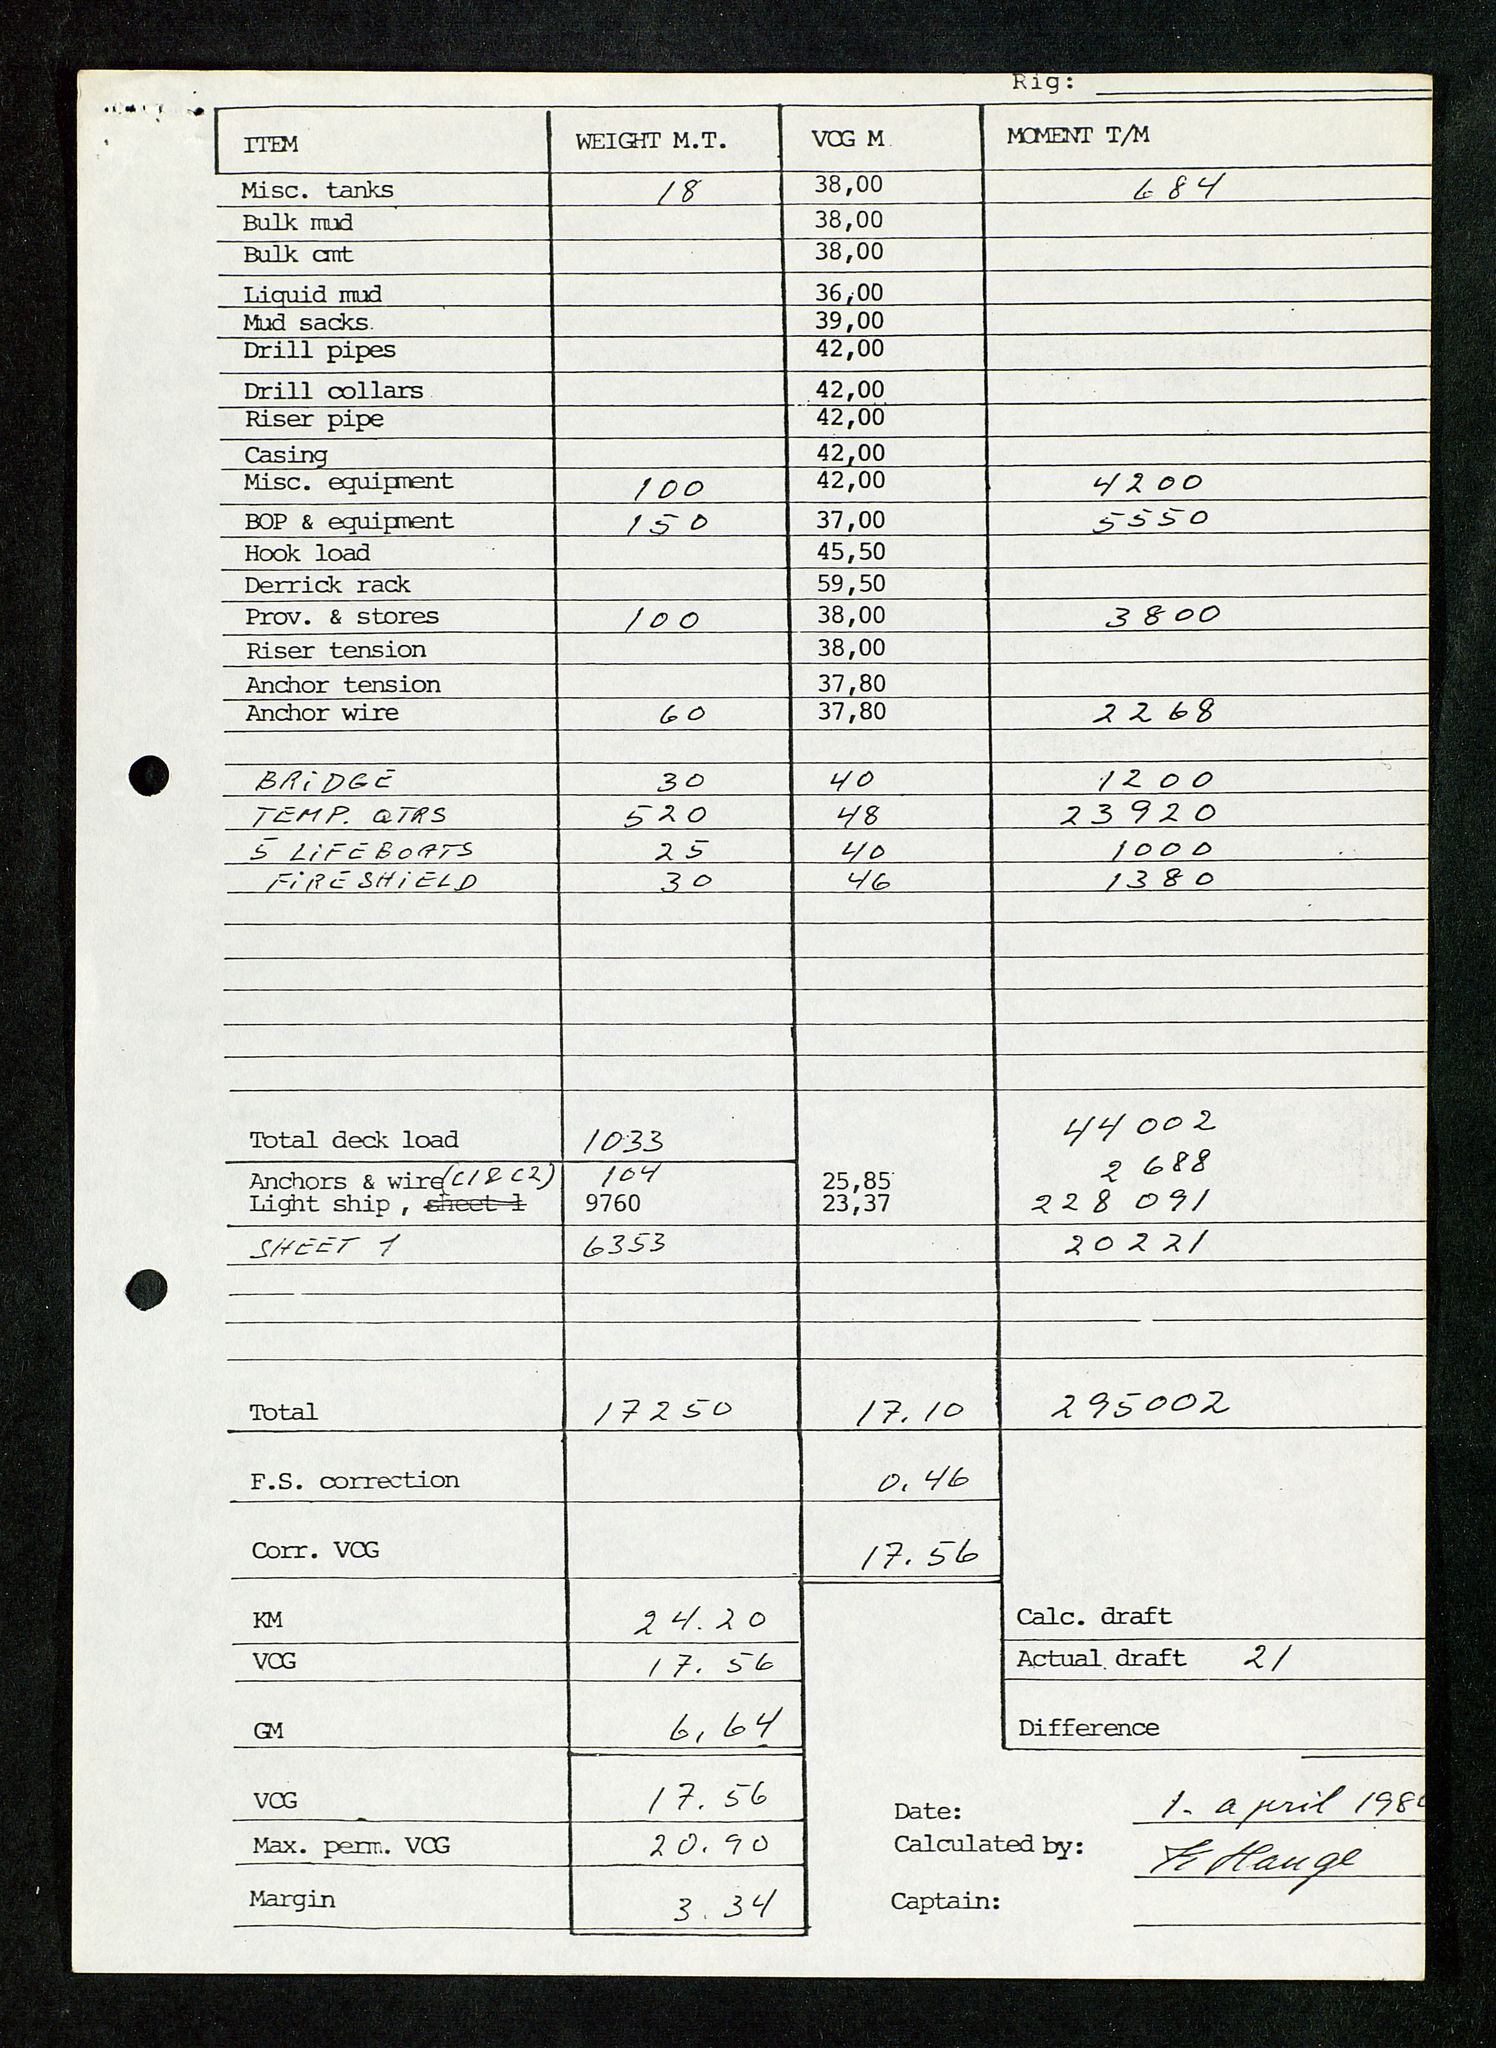 Rig:
ITEM WEIGHT M.T. VCG M. MOMENT T/M
Misc. tanks 18 38,00 684
Bulk mud 38,00
Bulk cmt 38,00
Liquid mud 36,00
Mud sacks. 39,00
Drill pipes 42,00
Drill collars 42,00
Riser pipe 42,00
Casing 42,00
Misc. equipment 100 42,00 4200
BOP & equipment 150 37,00 5550
Hook load 45,50
Derrick rack 59,50
Prov. & stores 100 38,00 3800
Riser tension 38,00
Anchor tension 37,80
Anchor wire 60 37,80 2268
BRIDGE 30 40 1200
TEMP. QTRS 520 48 23920
5 LIFEBOATS 25 40 1000
FIRESHIELD 30 46 1380
Total deck load 1033 44002
Anchors & wire (C1&C2) 104 25,85 2688
Light ship, sheet 1 9760 23,37 228091
SHEET 1 6353 20221
Total 17250 17.10 295002
F.S. correction 0.46
Corr. VCG 17.56
KM 24.20 Calc. draft
VCG 17.56 Actual draft 21
GM 6,64 Difference
VCG 17.56
Date: 1. april 198
Max. perm. VCG 20.90 Calculated by: Hauge
Margin 3.34 Captain: